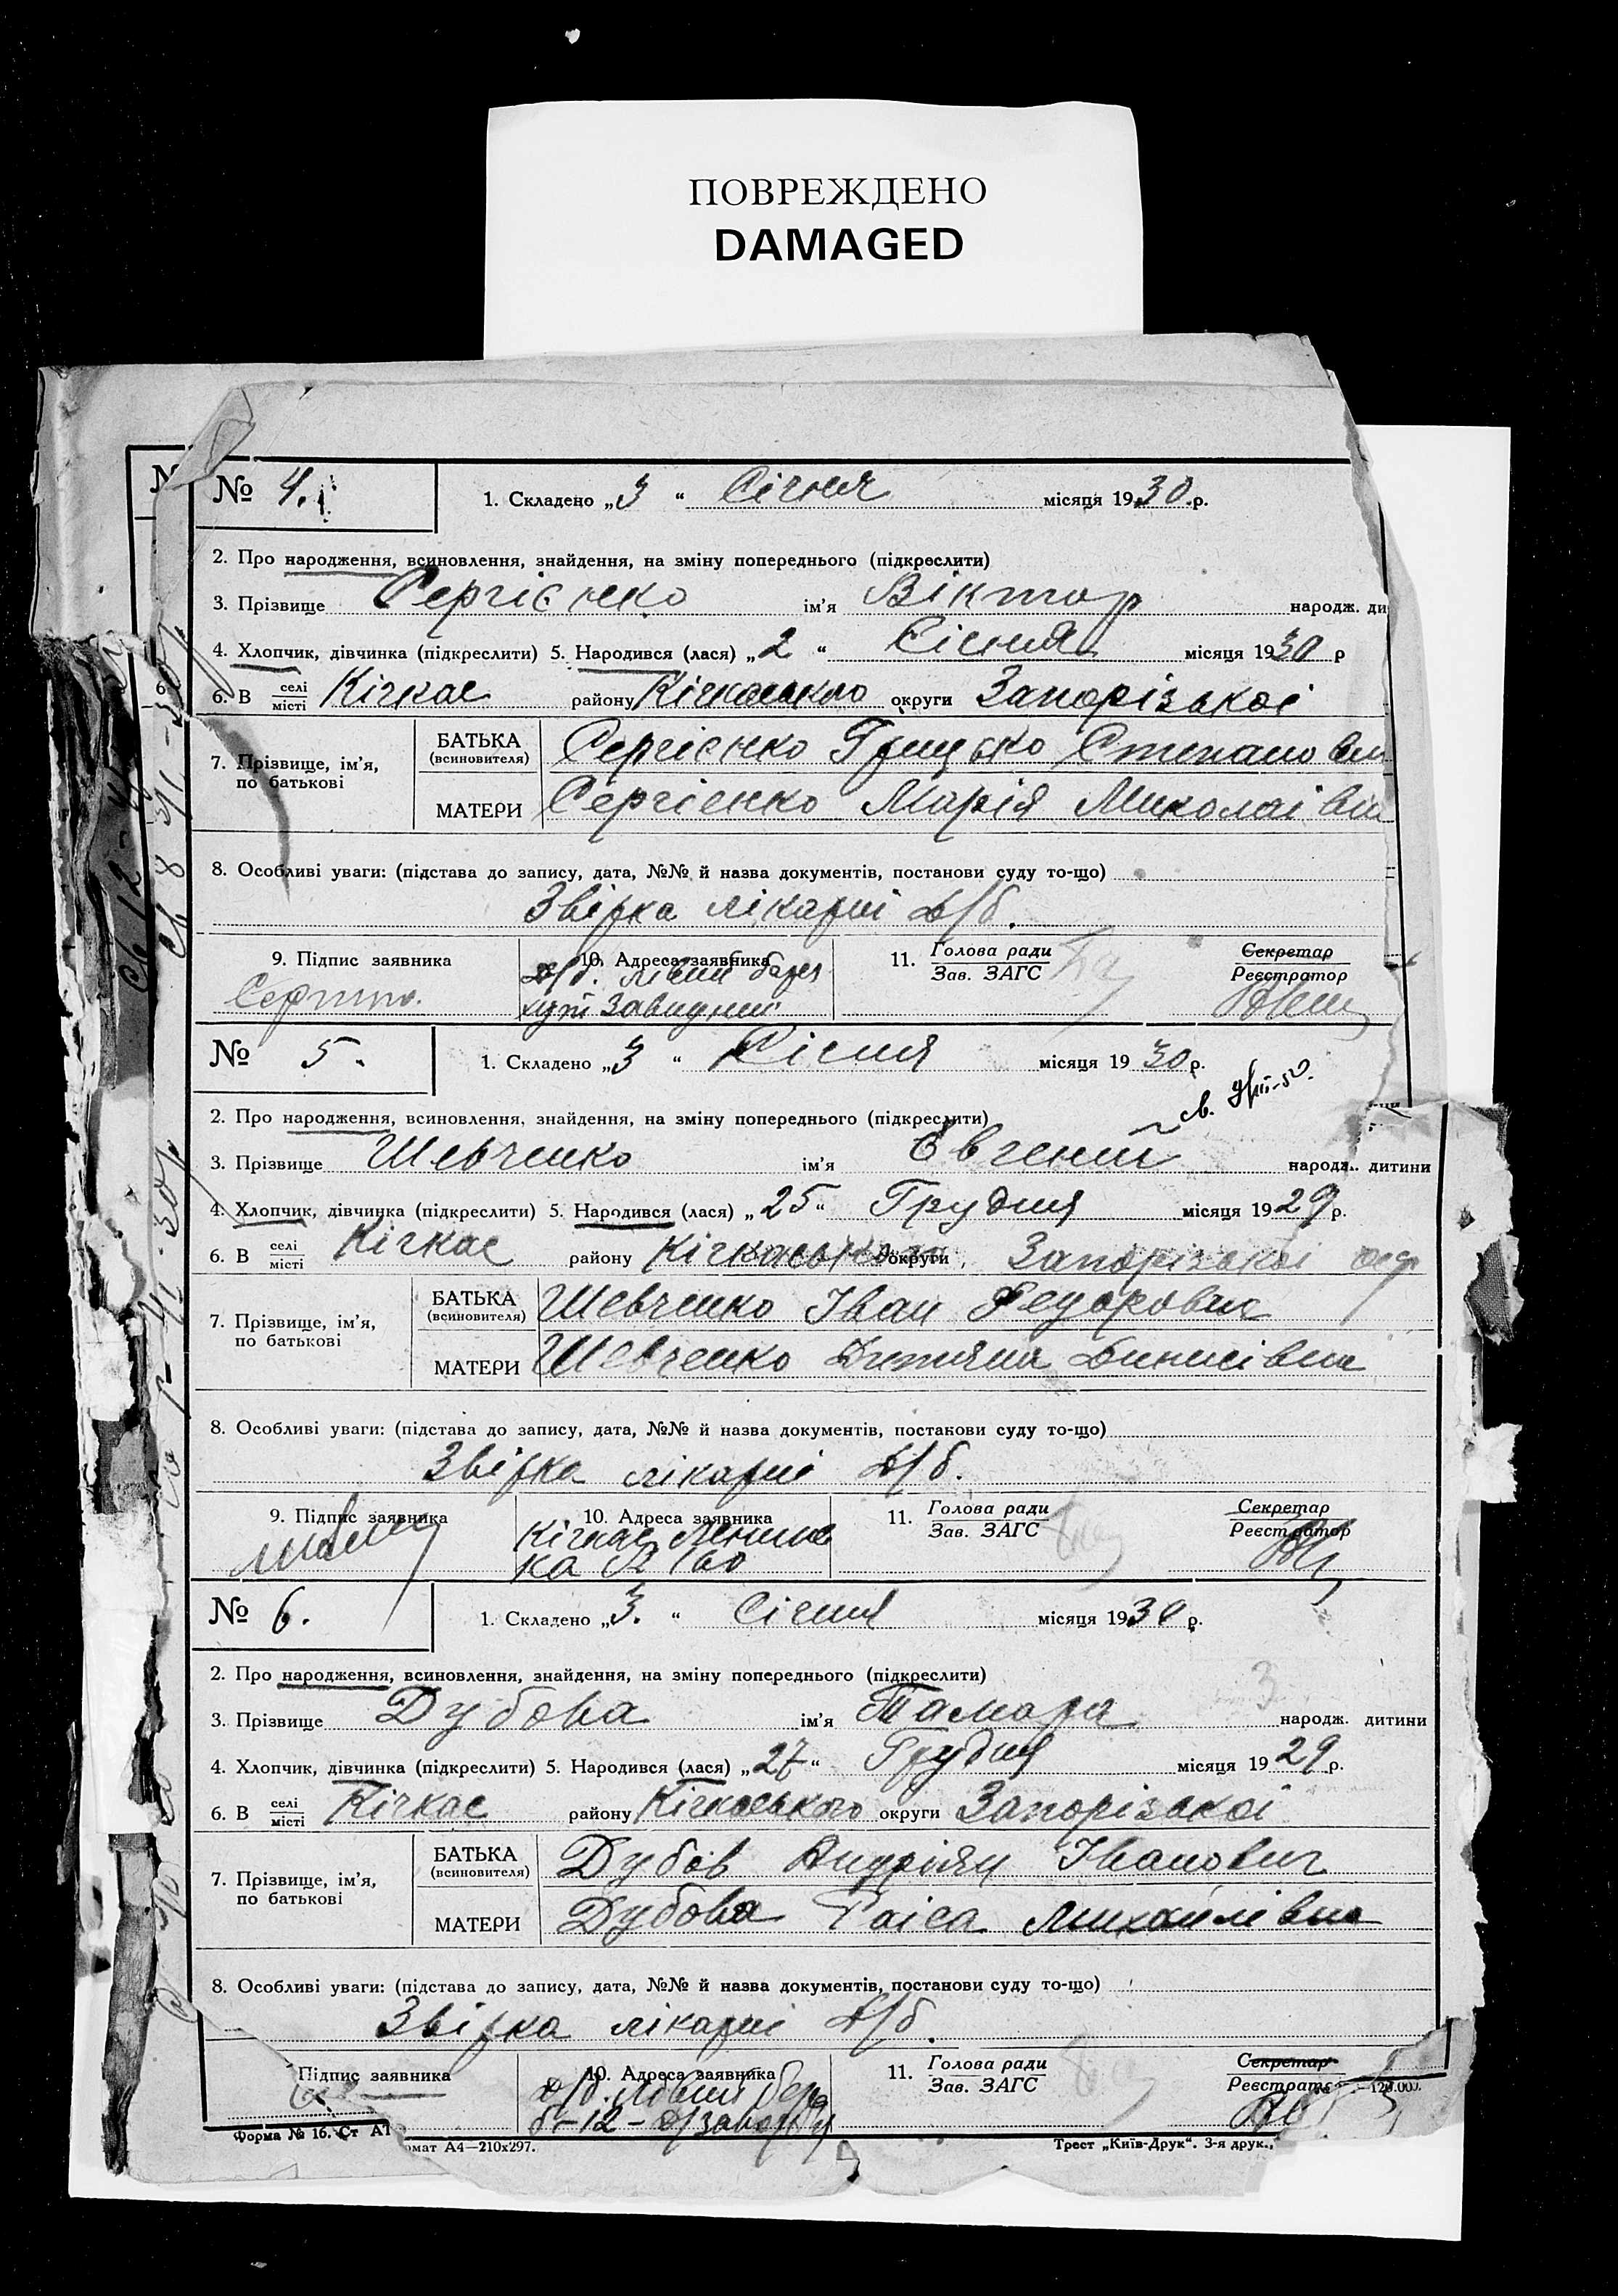 ПОВРЕЖДЕНО
DAMAGED
№ 4. 1. Складено „3“ Січня місяця 1930.р.
2. Про народження, всиновлення, знайдення, на зміну попереднього (підкреслити)
3. Прізвище Сергієнко ім'я Віктор народж. ди
4. Хлопчик, дівчинка (підкреслити) 5. Народився (лася) „2“ Січня місяця 1930 р
6. В селі місті Кічкас району Кічкаського округи Запорізької
7. Прізвище, ім'я, по батькові
БАТЬКА (всиновителя) Сергієнко Грицько Степанови
МАТЕРИ Сергієнко Марія Миколаівн
8. Особливі уваги: (підстава до запису, дата, №№ й назва документів, постанови суду то-що)
Звірка лікарні Д/б.
9. Підпис заявника 10. Адреса заявника 11. Голова ради Зав. ЗАГС Секретар Реєстратор
Д/б. лівий берег
№ 5. 1. Складено „3“ Січня місяця 1930р.
2. Про народження, всиновлення, знайдення, на зміну попереднього (підкреслити)
3. Прізвище Шевченко ім'я Євгений народж. дитини
4. Хлопчик, дівчинка (підкреслити) 5. Народився (лася) „25“ Грудня місяця 1929р.
6. В селі місті Кічкас району Кічкаського округи Запорізькоі
7. Прізвище, ім'я, по батькові
БАТЬКА (всиновителя) Шевченко Іван Федорович
МАТЕРИ Шевченко
8. Особливі уваги: (підстава до запису, дата, №№ й назва документів, постанови суду то-що)
Звірка лікарні Д/б.
9. Підпис заявника 10. Адреса заявника 11. Голова ради Зав. ЗАГС Секретар Реєстратор
Кічкас
№ 6. 1. Складено „3.“ Січня місяця 1930 р.
2. Про народження, всиновлення, знайдення, на зміну попереднього (підкреслити)
3. Прізвище Дубова ім'я Тамара народж. дитини
4. Хлопчик, дівчинка (підкреслити) 5. Народився (лася) „27“ Грудня місяця 1929р.
6. В селі місті Кічкас району Кічкаського округи Запорізькоі
7. Прізвище, ім'я, по батькові
БАТЬКА (всиновителя) Дубов Андріян Іванович
МАТЕРИ Дубова Раіса Михайлівна
8. Особливі уваги: (підстава до запису, дата, №№ й назва документів, постанови суду то-що)
Звірка лікарні Д/б.
Підпис заявника 10. Адреса заявника 11. Голова ради Зав. ЗАГС Секретар
Д/б. Лівий
Форма № 16. Ст мат А4—210х297. Трест „Київ-Друк“. 3-я друк.,